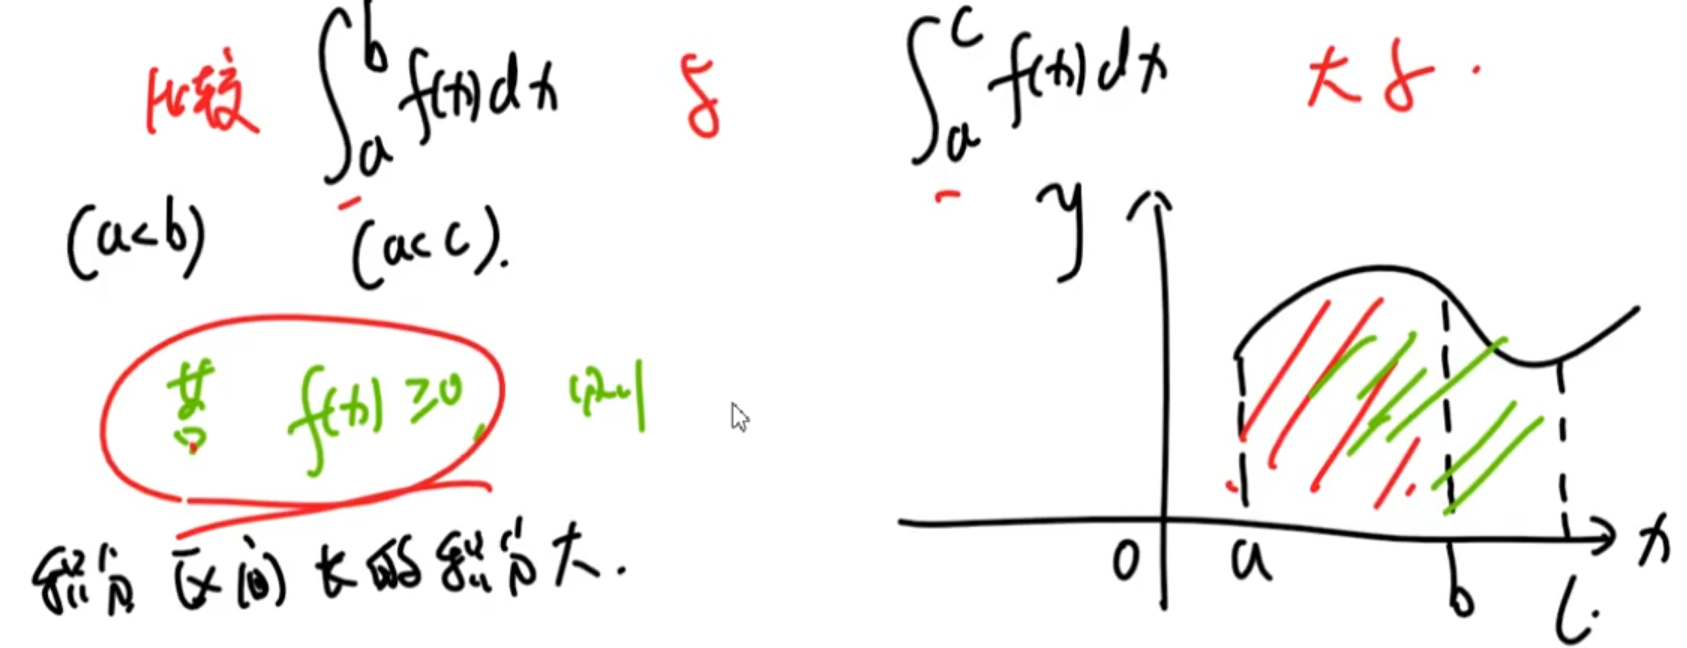 比较 ∫_a^b f(x)dx 与 ∫_a^c f(x)dx 大小.
(a<b) (a<c).
若 f(x) ≥0, 则
积分 区间 长的积分大.
y
0 a b c x